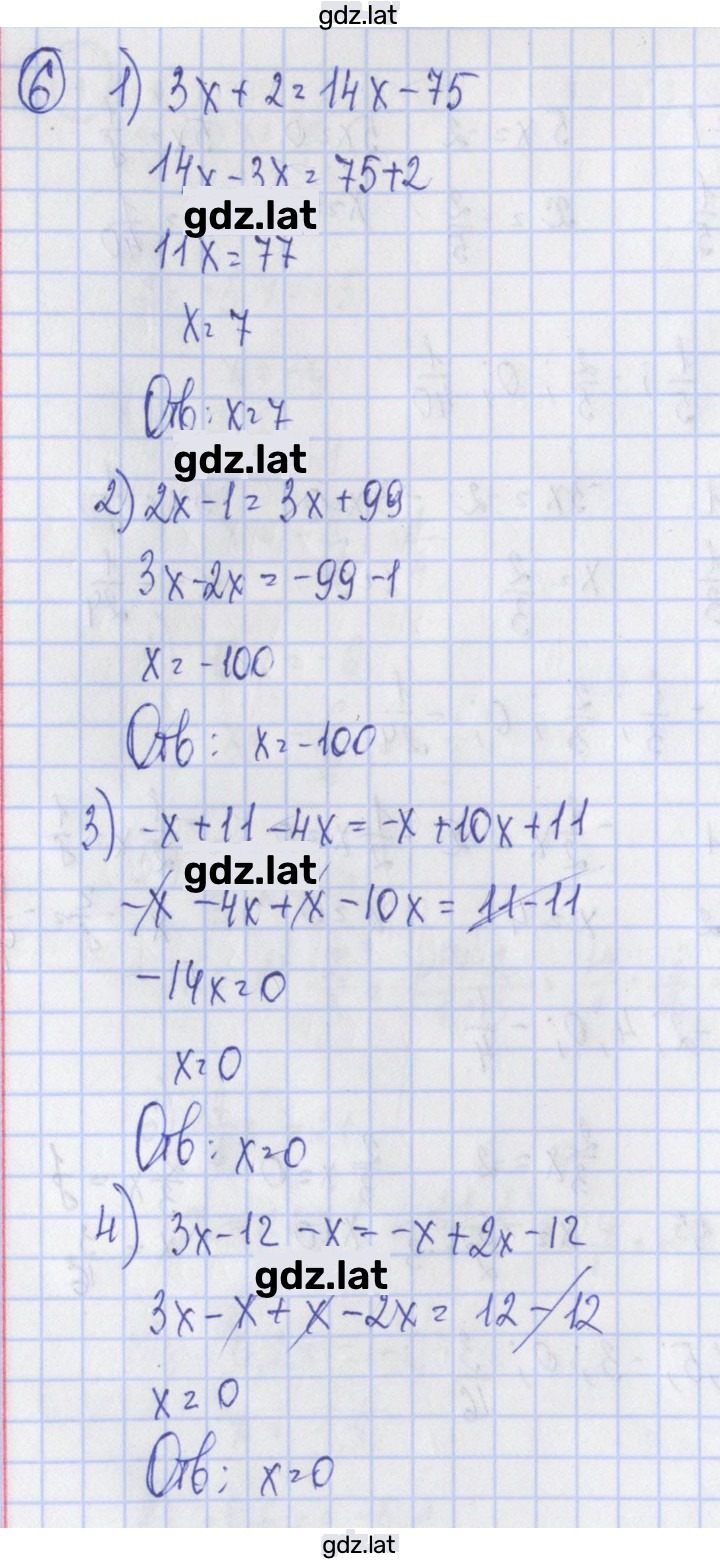 gdz.lat
6 1) 3x + 2 = 14x - 75
14x - 3x = 75 + 2
gdz.lat
11x = 77
x = 7
Отв: x = 7
gdz.lat
2) 2x - 1 = 3x + 99
3x - 2x = -99 - 1
x = -100
Отв: x = -100
3) -x + 11 - 4x = -x + 10x + 11
gdz.lat
-x - 4x + x - 10x = 11 - 11
-14x = 0
x = 0
Отв: x = 0
4) 3x - 12 - x = -x + 2x - 12
gdz.lat
3x - x + x - 2x = 12 - 12
x = 0
Отв: x = 0
gdz.lat